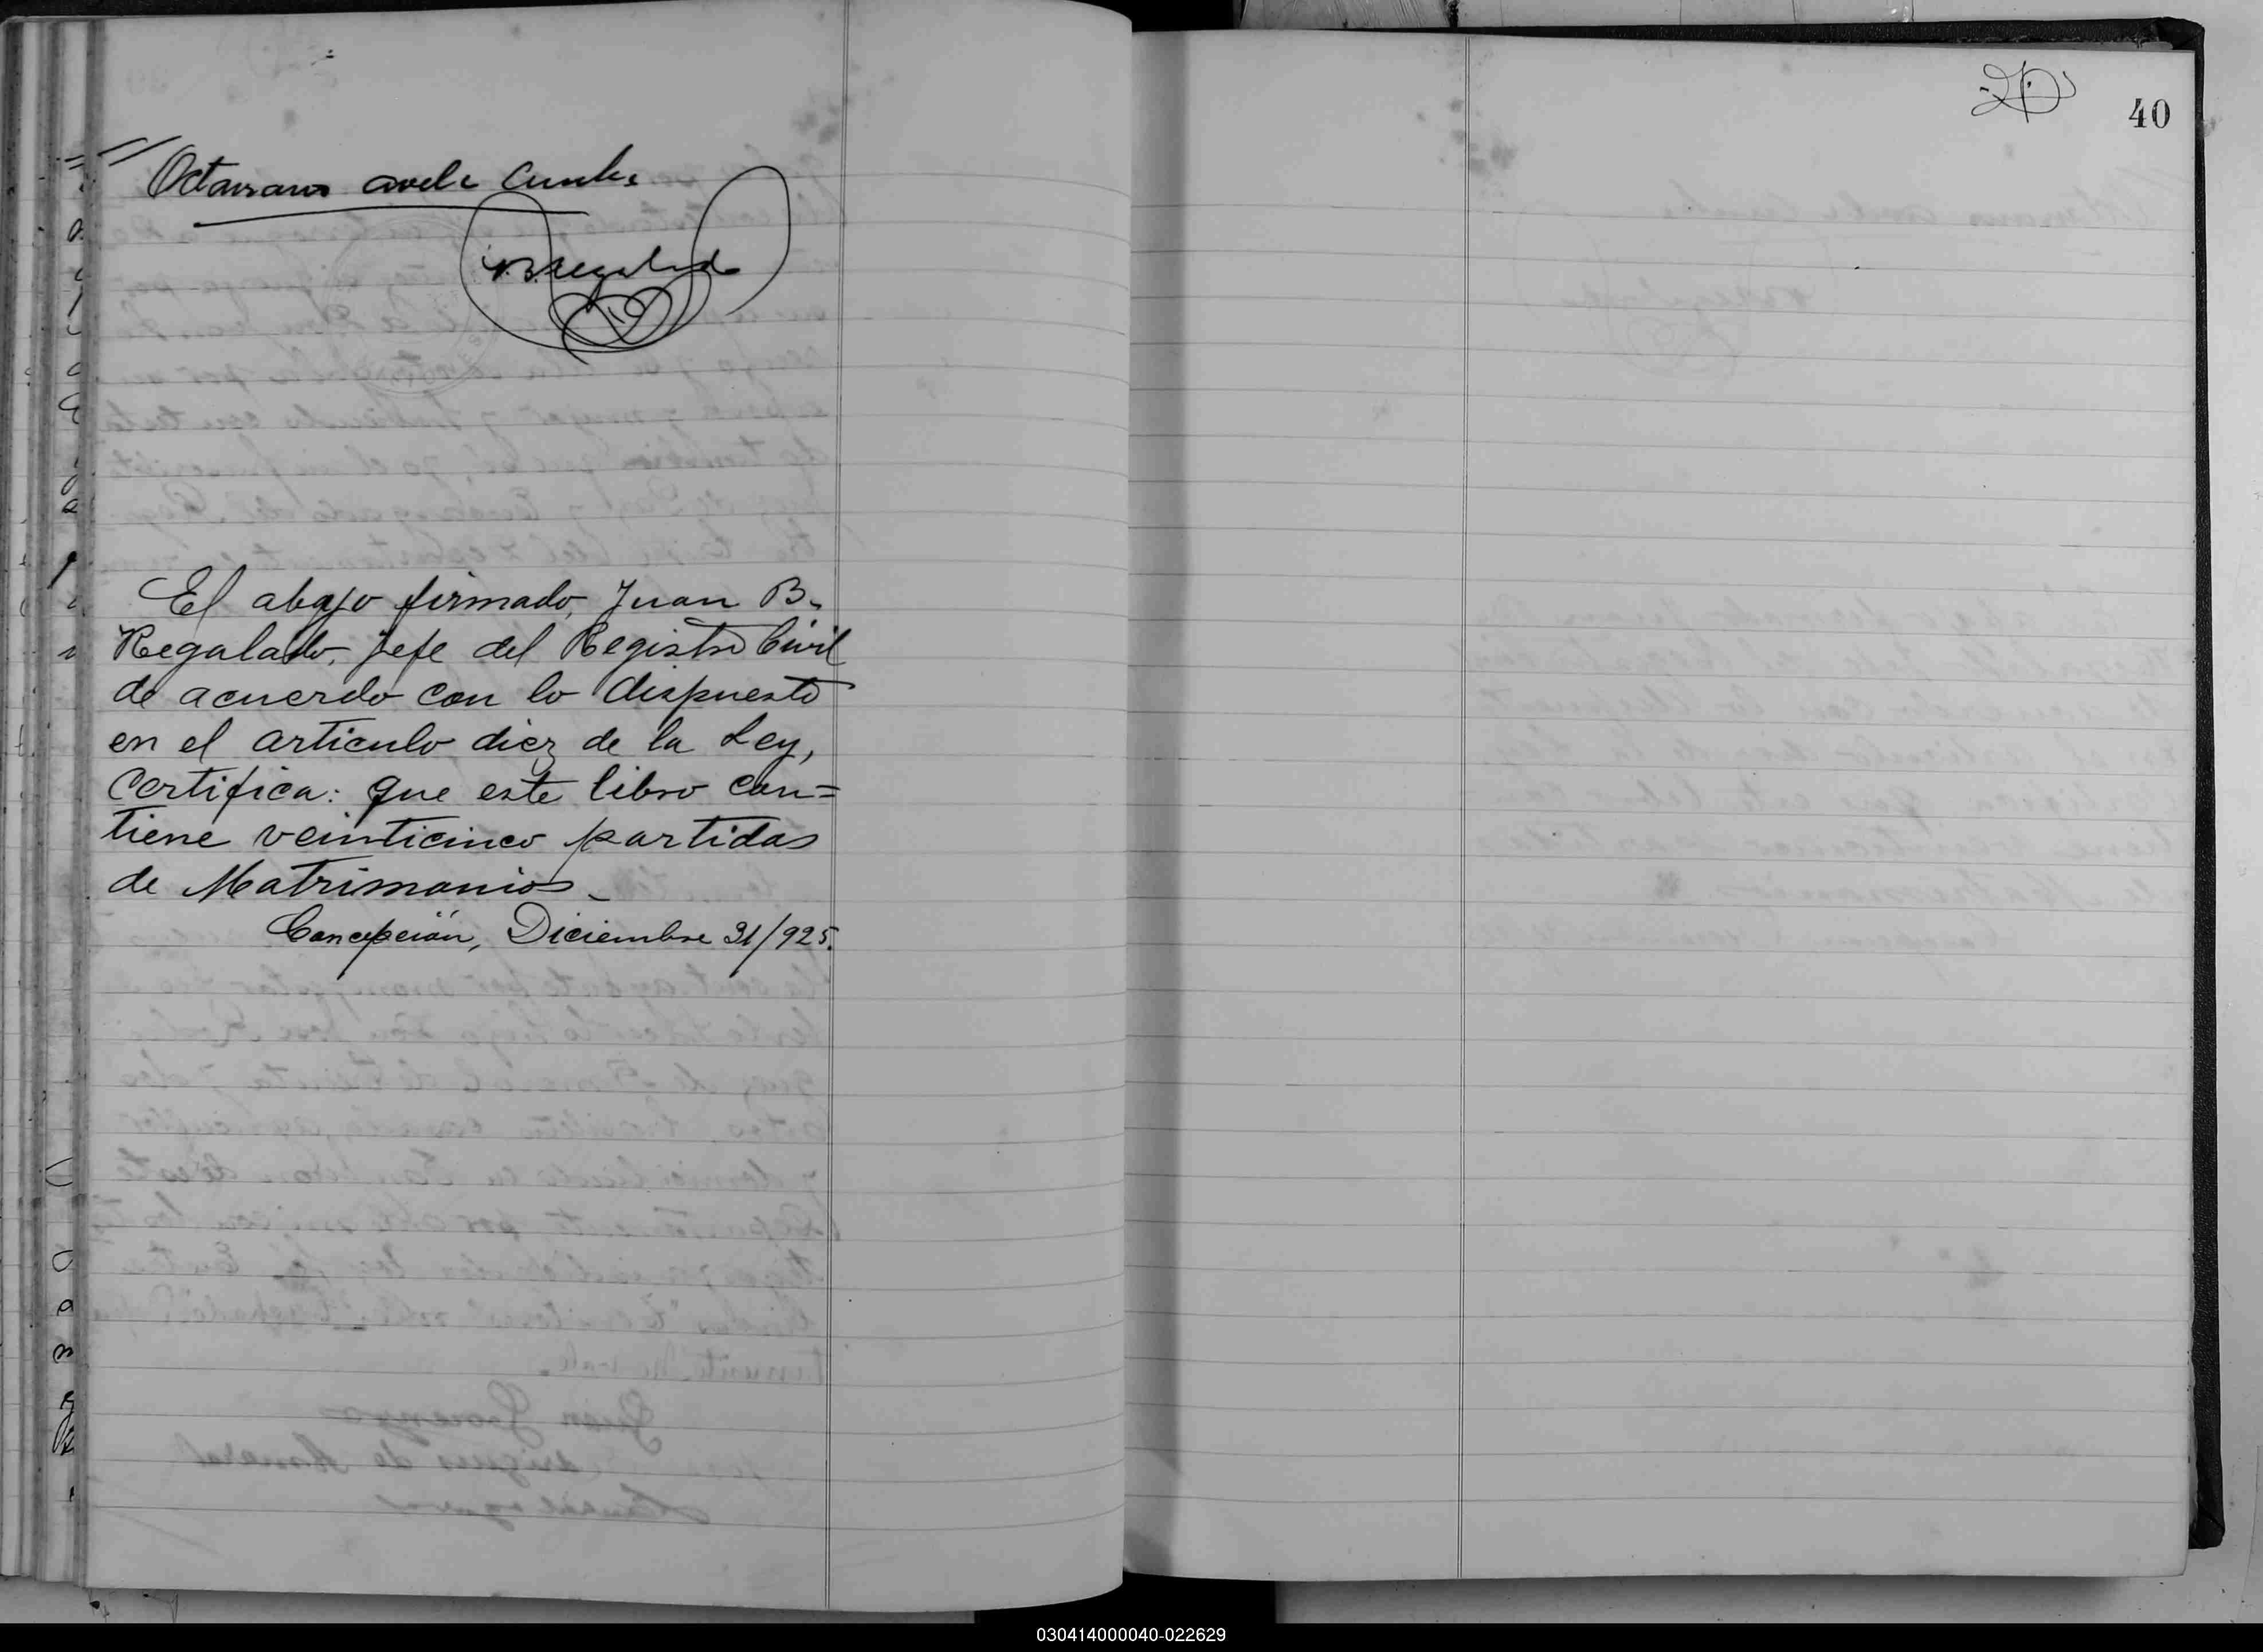 J.B. Regalado
El abajo firmado, Juan B.
Regalado, jefe del Registro Civil
de acuerdo con lo dispuesto
en el articulo diez de la Ley,
Certifica: que este libro con=
tiene veinticinco partidas
de Matrimonios_
Concepción, Diciembre 31/925.
40
030414000040-022629